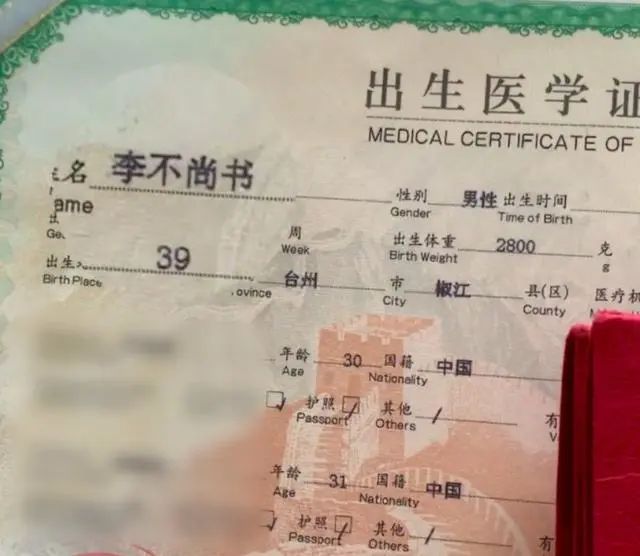 出生医学证
MEDICAL CERTIFICATE OF
名 李不尚书 性别 男性 出生时间
ame Gender Time of Birth
周 出生体重 2800 克
Week Birth Weight g
出生 39 台州 市 椒江 县(区) 医疗机
Birth Place ovince City County
年龄 30 国籍 中国
Age Nationality
护照 其他 / 有
Passport Others
年龄 31 国籍 中国
Age Nationality
护照 其他 / 有
Passport Others